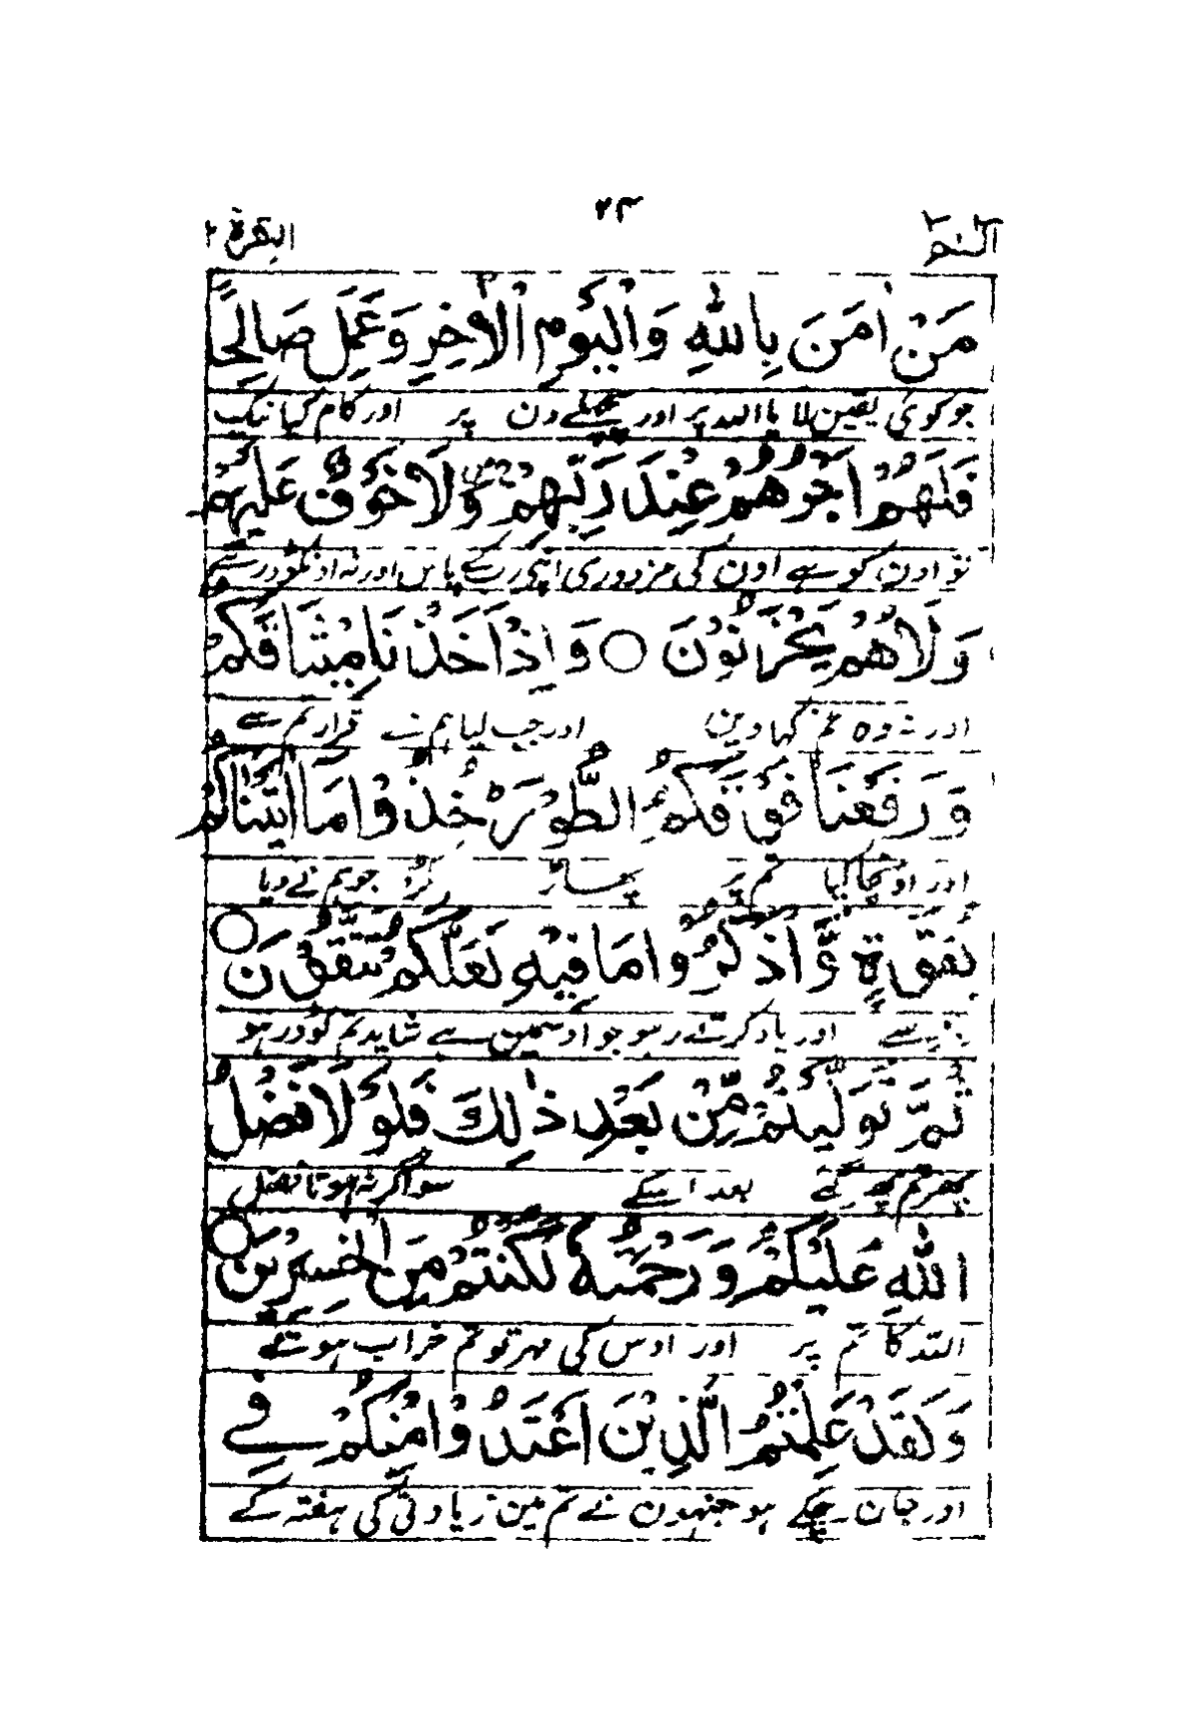 الٓمّٓ ٢٣ البقرة ٢
مَنْ اٰمَنَ بِاللّٰهِ وَالْيَوْمِ الْاٰخِرِ وَعَمِلَ صَالِحًا
جو کوئی یقین لایا اللہ پر اور پچھلے دن پر اور کام کیا نیک
فَلَهُمْ اَجْرُهُمْ عِنْدَ رَبِّهِمْ وَلَا خَوْفٌ عَلَيْهِمْ
تو اون کو ہے اون کی مزدوری اپنی رب کے پاس اور نہ اونکو ڈر ہے
وَلَا هُمْ يَحْزَنُوْنَ ○ وَاِذْ اَخَذْنَا مِيْثَاقَكُمْ
اور نہ وہ غم کہاوین اور جب لیا ہم نے قرار تم سے
وَرَفَعْنَا فَوْقَكُمُ الطُّوْرَ خُذُوْا مَا اٰتَيْنَاكُمْ
اور اونچا کیا تم پر پہاڑ جو ہم نے دیا
بِقُوَّةٍ وَّاذْكُرُوْا مَا فِيْهِ لَعَلَّكُمْ تَتَّقُوْنَ ○
سے اور یاد کرتے رہو جو اوسمین ہے شاید تم کو ڈر ہو
ثُمَّ تَوَلَّيْتُمْ مِّنْ بَعْدِ ذٰلِكَ فَلَوْلَا فَضْلُ
پھر تم پھر گئے بعد اسکے سو اگر نہ ہوتا فضل
اللّٰهِ عَلَيْكُمْ وَرَحْمَتُهٗ لَكُنْتُمْ مِّنَ الْخٰسِرِيْنَ ○
اللہ کا تم پر اور اوس کی مہر تو تم خراب ہوتے
وَلَقَدْ عَلِمْتُمُ الَّذِيْنَ اعْتَدَوْا مِنْكُمْ فِي
اور جان چکے ہو جنہون نے تم مین زیادتی کی ہفتہ کے